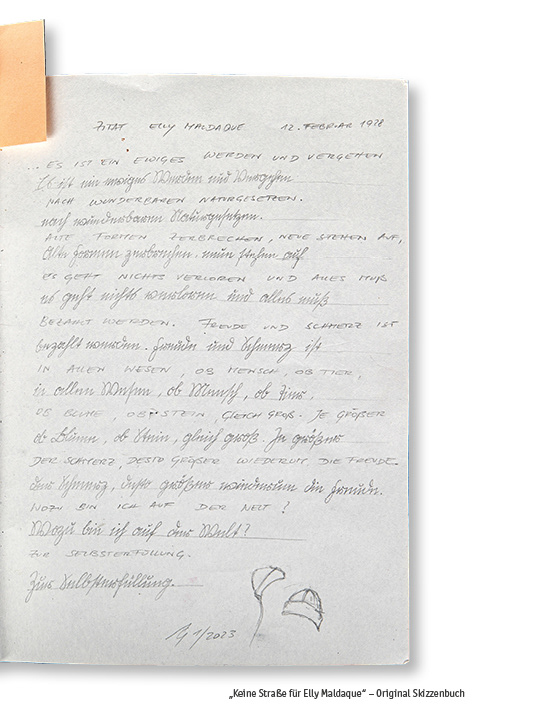 ZITAT ELLY MALDAQUE 12. FEBRUAR 1928
... ES IST EIN EWIGES WERDEN UND VERGEHEN
Es ist ein ewiges Werden und Vergehen
NACH WUNDERBAREN NATURGESETZEN.
nach wunderbaren Naturgesetzen.
ALTE FORMEN ZERBRECHEN, NEUE STEHEN AUF,
Alte Formen zerbrechen, neue stehen auf
ES GEHT NICHTS VERLOREN UND ALLES MUß
es geht nichts verloren und alles muß
BEZAHLT WERDEN. FREUDE UND SCHMERZ IST
bezahlt werden. Freude und Schmerz ist
IN ALLEN WESEN, OB MENSCH, OB TIER,
in allen Wesen, ob Mensch, ob Tier,
OB BLUME, OB STEIN, GLEICH GROß. JE GRÖßER
ob Blume, ob Stein, gleich groß. Je größer
DER SCHMERZ, DESTO GRÖßER WIEDERUM DIE FREUDE.
der Schmerz, desto größer wiederum die Freude.
WOZU BIN ICH AUF DER WELT?
Wozu bin ich auf der Welt?
ZUR SELBSTERFÜLLUNG.
Zur Selbsterfüllung.
1/2023
„Keine Straße für Elly Maldaque“ – Original Skizzenbuch